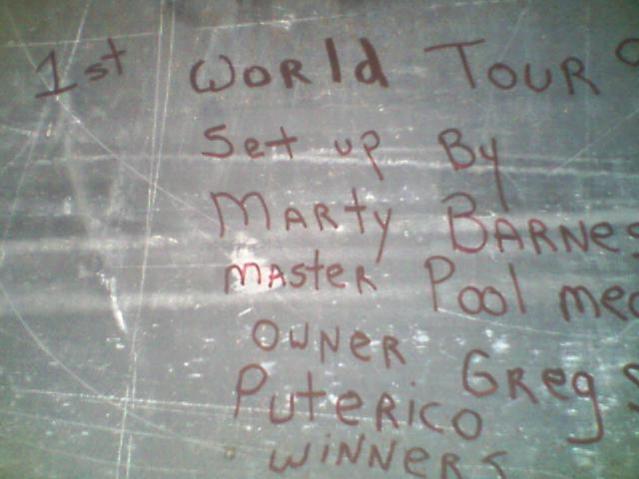 1st WORld TOUR
Set up By
MARty BARNes
MAsteR Pool
OWNeR GReg
PuteRico
WiNNeRs